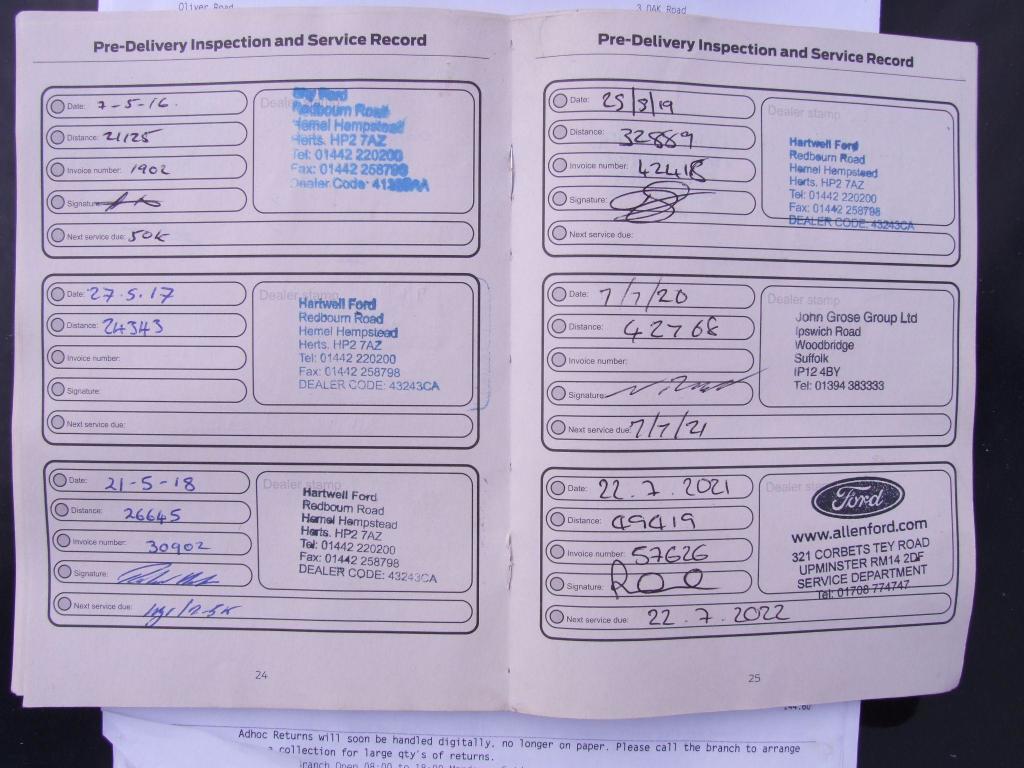 Oliver Road
3 OAK Road
Pre-Delivery Inspection and Service Record
Date: 7-5-16.
Distance: 21125
Invoice number: 1902
Signature:
Next service due: 50K
Dealer
Ford
Redbourn Road
Hemel Hempstead
Herts. HP2 7AZ
Tel: 01442 220200
Fax: 01442 258798
Dealer Code:
Date: 27.5.17
Distance: 24343
Invoice number:
Signature:
Next service due:
Dealer stamp
Hartwell Ford
Redbourn Road
Hemel Hempstead
Herts. HP2 7AZ
Tel: 01442 220200
Fax: 01442 258798
DEALER CODE: 43243CA
Date: 21-5-18
Distance: 26645
Invoice number: 30902
Signature:
Next service due:
Dealer stamp
Hartwell Ford
Redbourn Road
Hemel Hempstead
Herts. HP2 7AZ
Tel: 01442 220200
Fax: 01442 258798
DEALER CODE: 43243CA
24
Pre-Delivery Inspection and Service Record
Date: 25/3/19
Distance: 32889
Invoice number: 42418
Signature:
Next service due:
Dealer stamp
Hartwell Ford
Redbourn Road
Hemel Hempstead
Herts. HP2 7AZ
Tel: 01442 220200
Fax: 01442 258798
DEALER CODE: 43243CA
Date: 7/7/20
Distance: 42768
Invoice number:
Signature:
Next service due: 7/7/21
Dealer stamp
John Grose Group Ltd
Ipswich Road
Woodbridge
Suffolk
IP12 4BY
Tel: 01394 383333
Date: 22.7.2021
Distance: 49419
Invoice number: 57626
Signature:
Next service due: 22.7.2022
Dealer stamp
Ford
www.allenford.com
321 CORBETS TEY ROAD
UPMINSTER RM14 2DF
SERVICE DEPARTMENT
Tel: 01708 774747
25
Adhoc Returns will soon be handled digitally, no longer on paper. Please call the branch to arrange
collection for large qty's of returns.